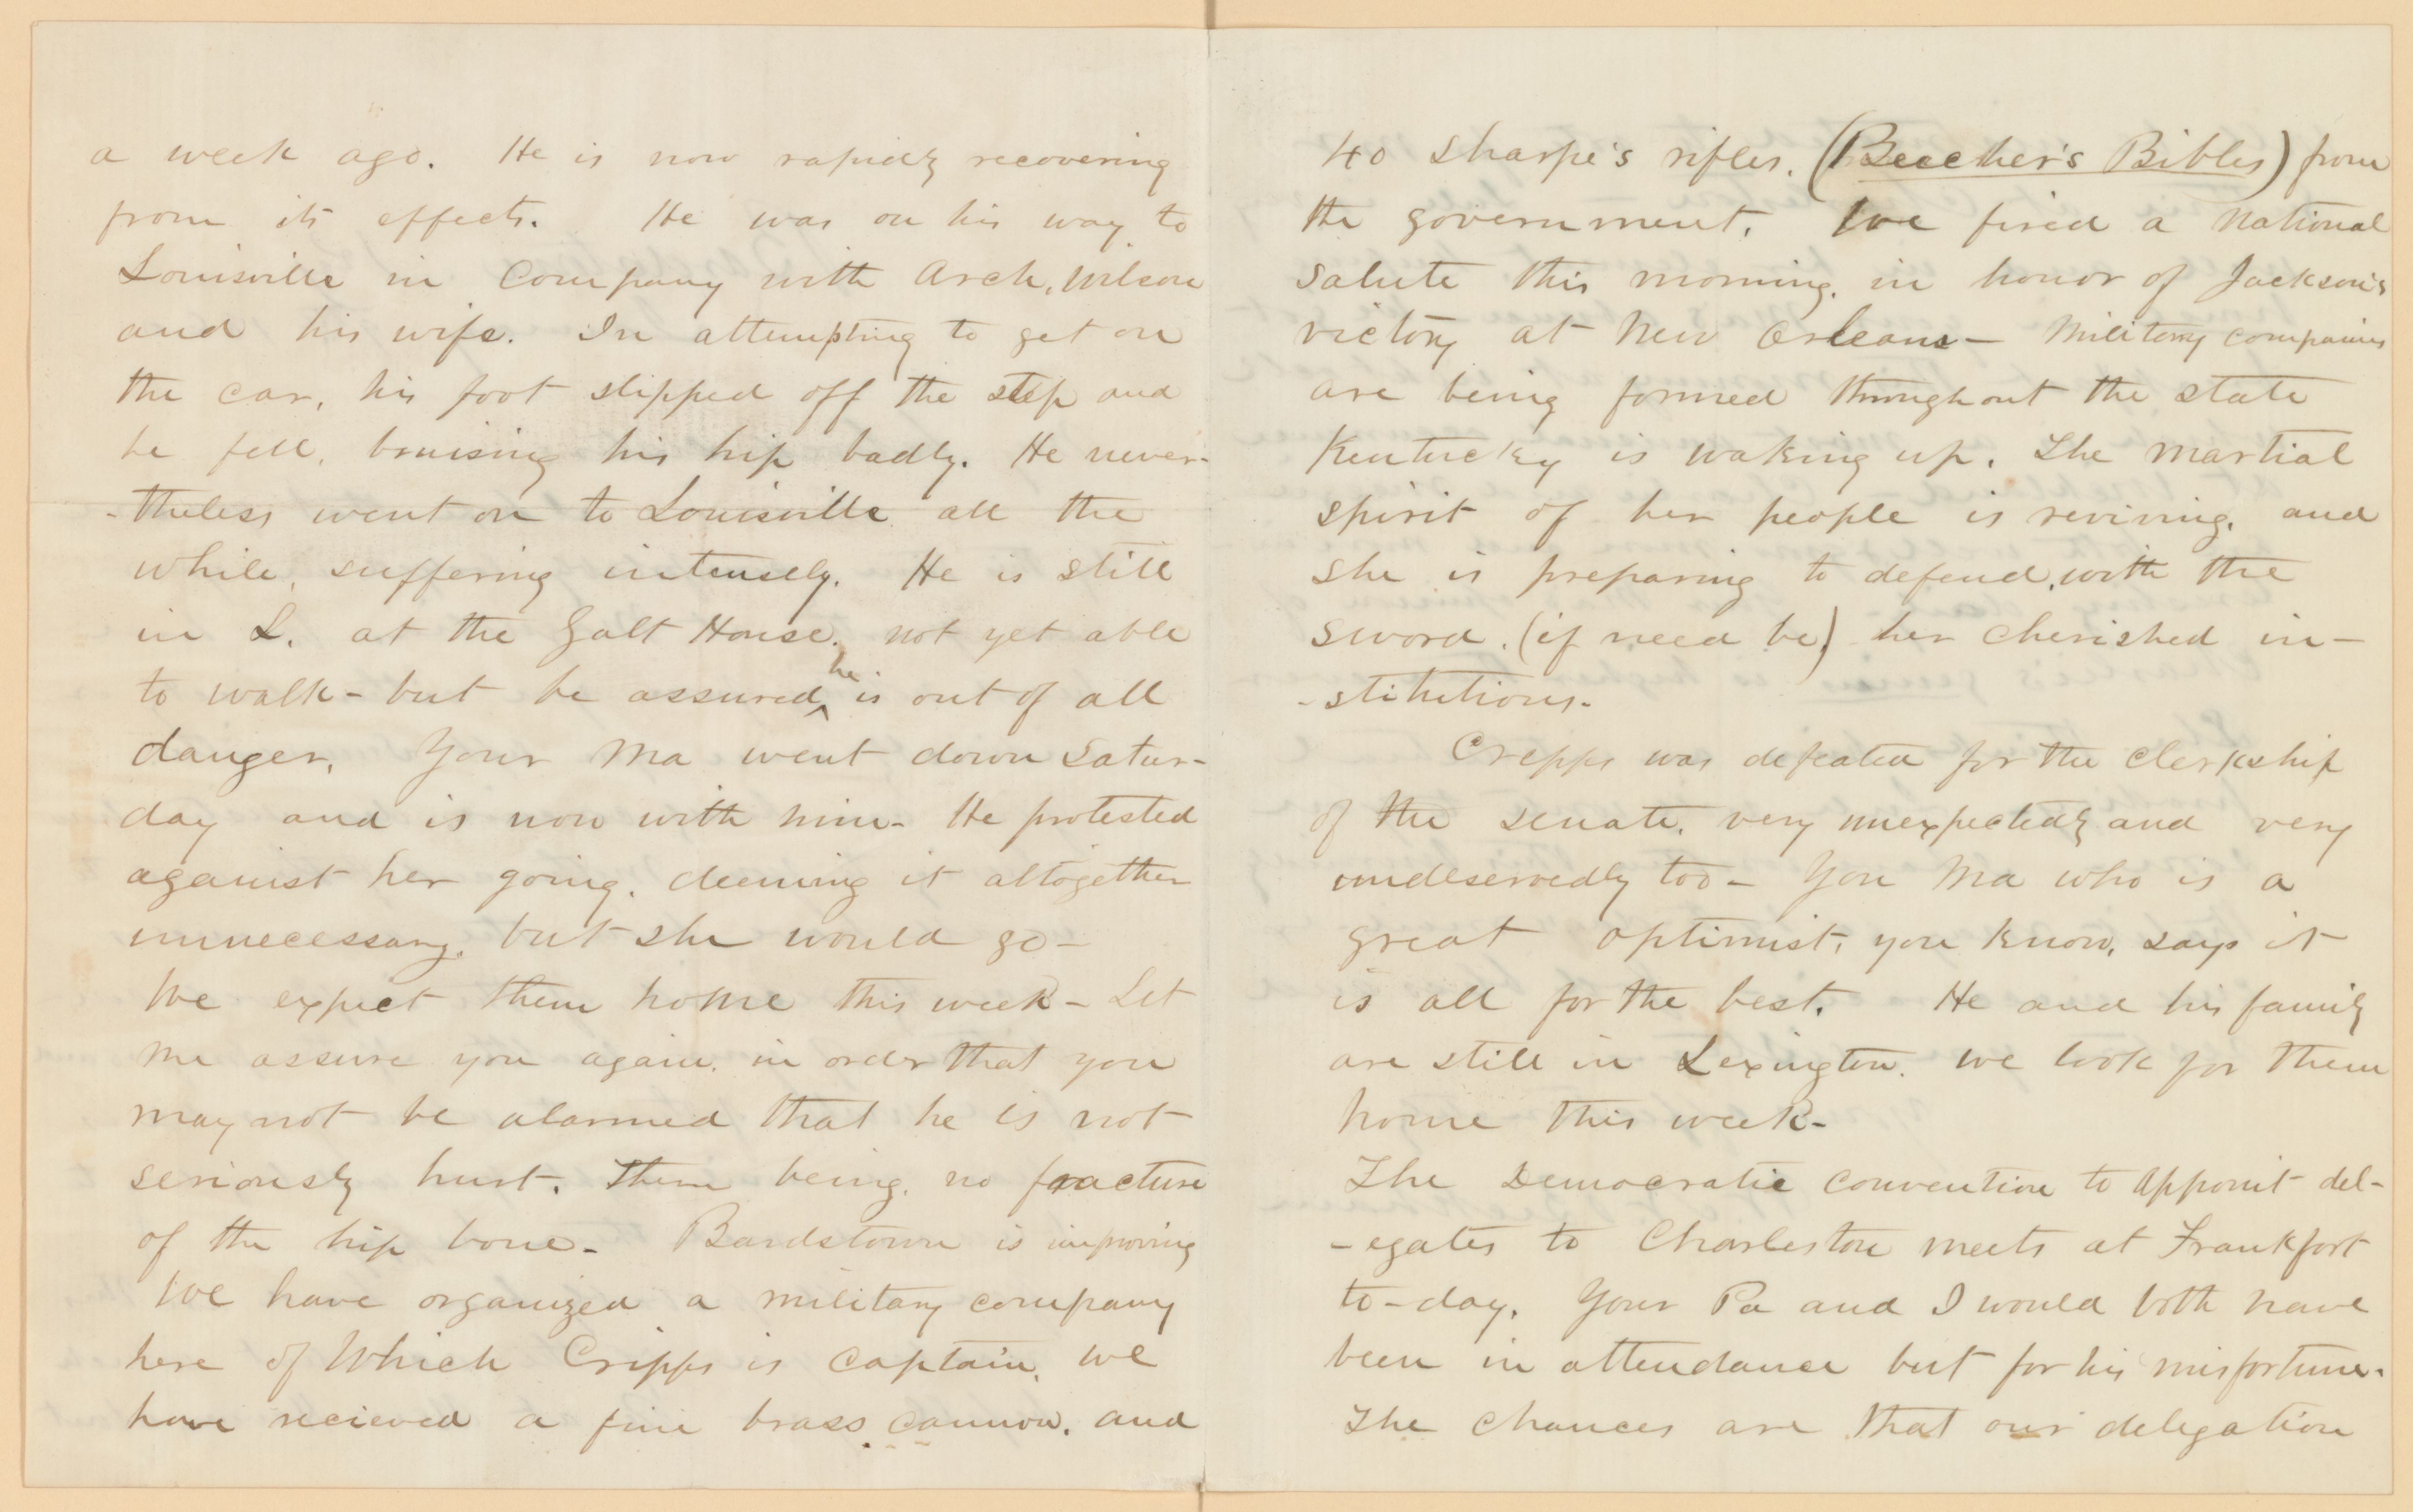 a week ago. He is now rapidly recovering
from its effects. He was on his way to
Louisville in company with Arch. Wilson
and his wife. In attempting to get on
the car, his foot slipped off the step and
he fell, bruising his hip badly. He never-
-theless went on to Louisville all the
while, suffering intensely. He is still
in L. at the Galt House, not yet able
to walk - but be assured, he is out of all
danger. Your Ma went down Satur-
day and is now with him - He protested
against her going, deeming it altogether
unnecessary, but she would go -
We expect them home this week - Let
me assure you again, in order that you
may not be alarmed that he is not
seriously hurt. There being, no fracture
of the hip bone - Bardstown is improving
We have organized a military company
here of Which Cripps is Captain. We
have recieved a fine brass cannon, and
40 Sharpe's rifles, (Beecher's Bibles) from
the government. We fired a National
Salute this morning, in honor of Jackson's
victory at New Orleans - Military companies
are being formed throughout the state
Kentucky is waking up. The martial
spirit of her people is reviving, and
she is preparing to defend, with the
sword, (if need be) her cherished in-
-stitutions.
Cripps was defeated for the Clerkship
of the senate, very unexpectedly and very
undeservedly too - You Ma who is a
great optimist, you know, says it
is all for the best. He and his family
are still in Lexington. We look for them
home this week -
The Democratic Convention to appoint del-
-egates to Charleston meets at Frankfort
to-day. Your Pa and I would both have
been in attendance but for his misfortune.
The chances are that our delegation